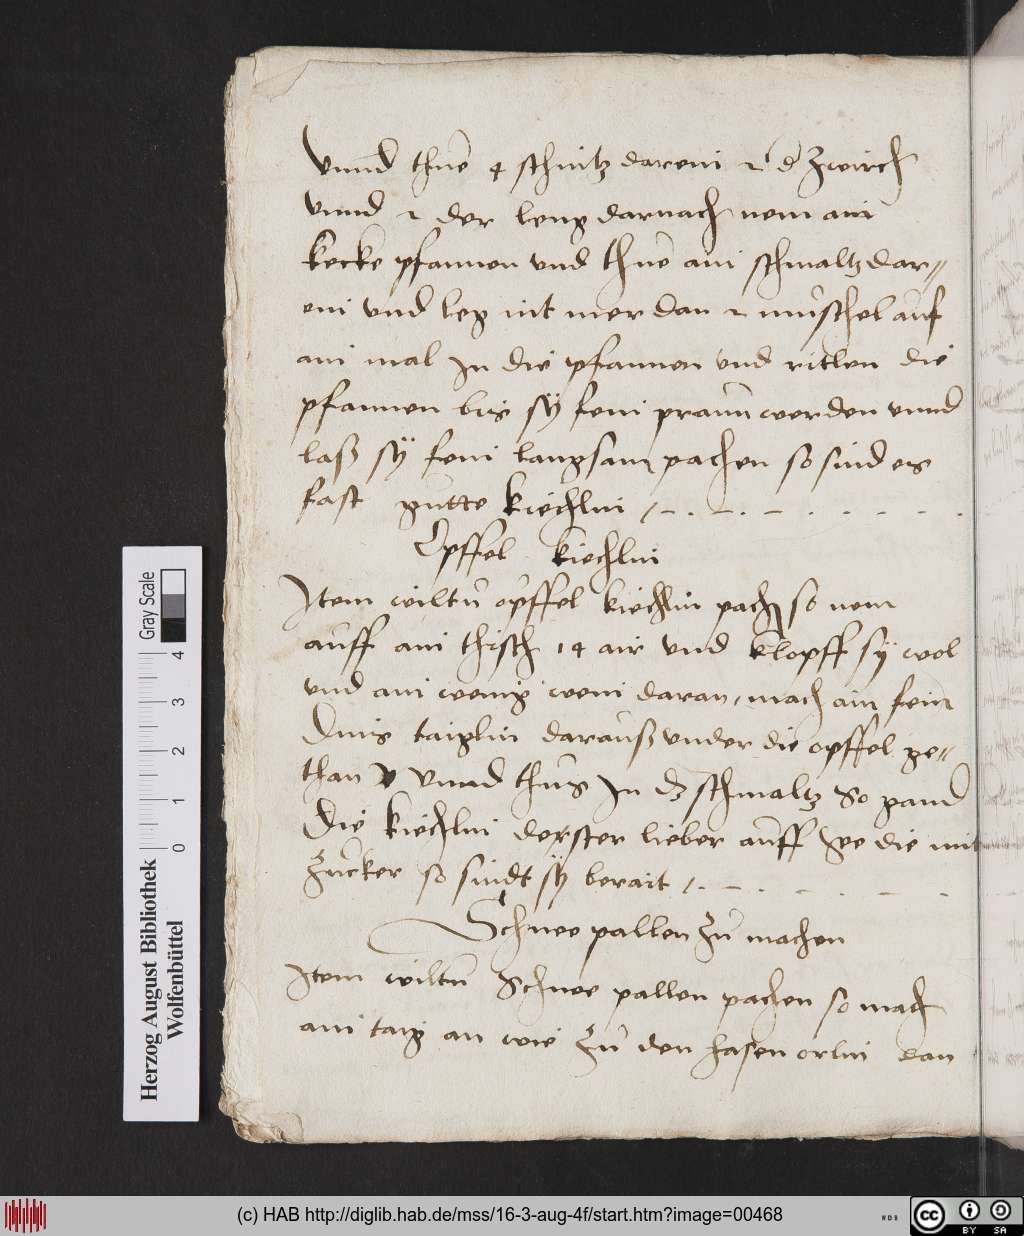 vnnd thue 4 schnitz darein 2 d zwirch
vnnd 2 der leng darnach nem ain
kecke pfannen vnd thue ain schmaltz dar=
ein vnd leg nit mer dan 2 muschel auf
ain mal In die pfannen vnd ritlen die
pfannen bis sÿ fein praun werden vnnd
laß sÿ fein langsam pachen so sind es
fast gutte kiechlin
Öpffel kiechlin
Item wiltu öpffel kiechlin pachen so nem
auff ain thisch 14 air vnd klopff sÿ wol
vnd ain wenig wein daran, mach ain fein
Dins taiglin darauß vnder die opffel ge=
than vnnd thus In dz schmaltz So gand
Die kiechlin dester lieber auff See die mit
Zucker so sindt sÿ berait
Schnee pallen Zu machen
Item wiltu Schnee pallen pachen so mach
ain taig an wie Zu den hasen örlin dan
Gray Scale
0 1 2 3 4
Herzog August Bibliothek
Wolfenbüttel
(c) HAB http://diglib.hab.de/mss/16-3-aug-4f/start.htm?image=00468
WDB
cc BY SA